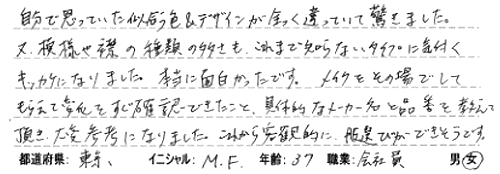 自分で思っていた似合う色&デザインが全く違っていて驚きました。
又、模様や襟の種類の多さも、これまで知らないタイプに気付く
キッカケになりました。本当に面白かったです。メイクをその場でして
もらえて変化をすぐ確認できたこと、具体的なメーカー名と品番を教えて
頂き、大変参考になりました。これから客観的に、服選びができそうです。
都道府県: 東京、 イニシャル: M.F. 年齢: 37 職業: 会社員 男・女